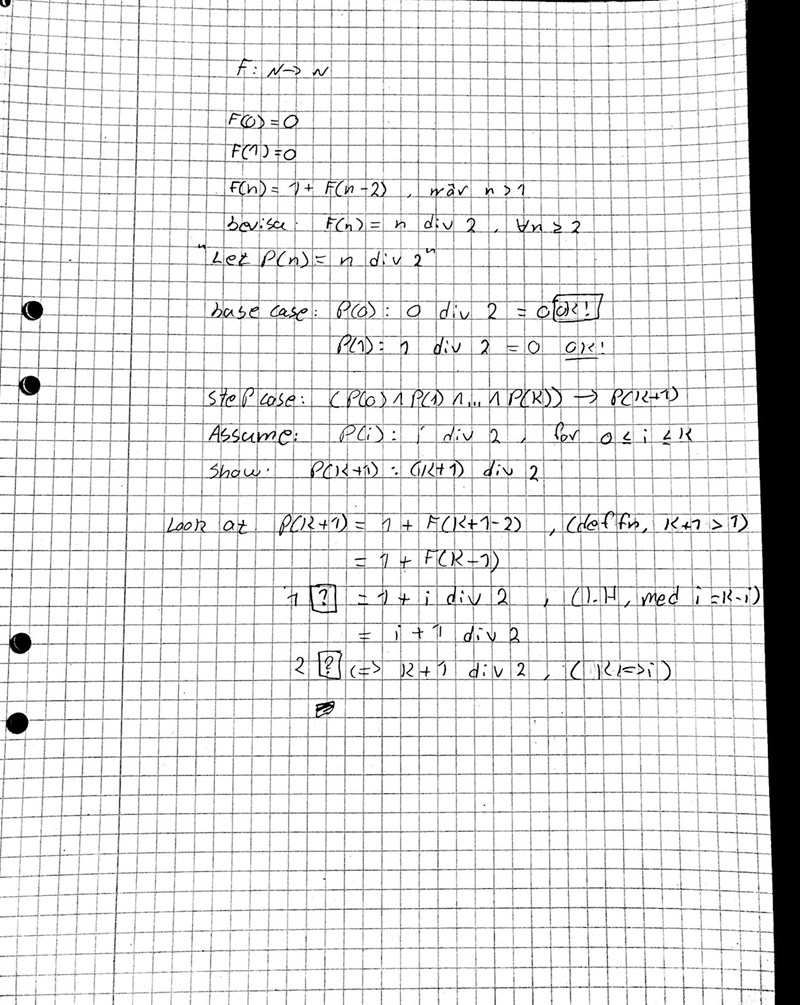 F: N → N
F(0) = 0
F(1) = 0
F(n) = 1 + F(n-2) , när n > 1
bevisa: F(n) = n div 2 , ∀n ≥ 2
"Let P(n) = n div 2"
base case: P(0) : 0 div 2 = 0 OK!
P(1) : 1 div 2 = 0 OK!
Step case: (P(0) ∧ P(1) ∧ ... ∧ P(K)) → P(K+1)
Assume: P(i) : i div 2 , for 0 ≤ i ≤ K
Show: P(K+1) : (K+1) div 2
Look at P(K+1) = 1 + F(K+1-2) , (def fn, K+1 > 1)
= 1 + F(K-1)
1 ? = 1 + i div 2 , (I.H, med i = K-i)
= i + 1 div 2
2 ? <=> K+1 div 2 , ( K <=> i)